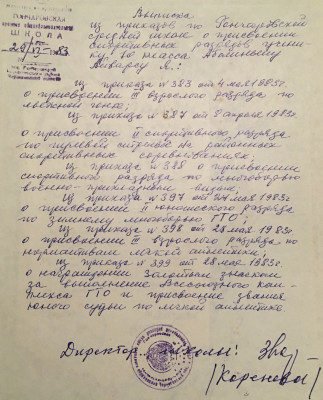 Выписка
из приказов по Гончаровской
средней школе о присвоении
спортивных разрядов учени-
ку 10 класса
ГОНЧАРОВСКАЯ
ШКОЛА
из приказа № 383 от 4 мая 1983г.
о присвоении III взрослого разряда по
лыжной гонке;
из приказа № 387 от 8 апреля 1983г.
о присвоении II спортивного разряда
по пулевой стрельбе на районных
спортивных соревнованиях;
из приказа № 385 о присвоении
спортивного разряда по многоборью
военно-прикладным видам;
из приказа № 397 от 24 мая 1983г.
о присвоении I юношеского разряда
по зимнему многоборью ГТО;
из приказа № 398 от 28 мая 1983г.
о присвоении III взрослого разряда по
нормативам легкой атлетике;
из приказа № 399 от 28 мая 1983г.
о награждении Золотым знаком
за выполнение Всесоюзного ком-
плекса ГТО и присвоение звания
юного судьи по легкой атлетике
Директор школы:
/Коренева/